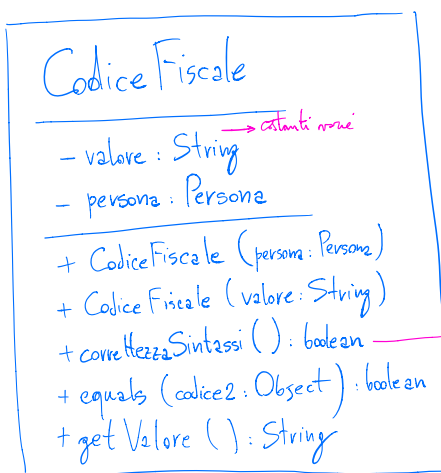 Codice Fiscale
→ costanti varie
- valore : String
- persona : Persona
+ CodiceFiscale (persona : Persona)
+ Codice Fiscale (valore : String)
+ correttezzaSintassi () : boolean
+ equals (codice2 : Object) : boolean
+ getValore () : String